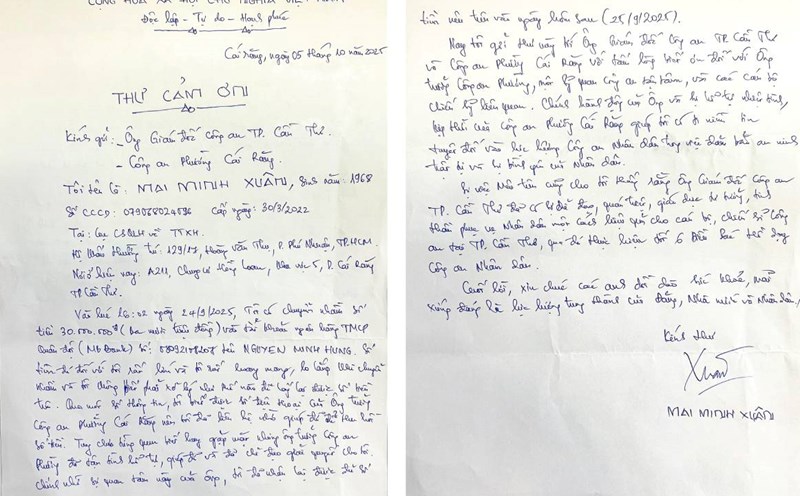 CỘNG HÒA XÃ HỘI CHỦ NGHĨA VIỆT NAM
Độc lập - Tự do - Hạnh phúc
Cái Răng, ngày 05 tháng 10 năm 2025
THƯ CẢM ƠN
Kính gửi: - Ông Giám đốc Công an TP. Cần Thơ.
- Công an Phường Cái Răng.
Tôi tên là: MAI MINH XUÂN, Sinh năm: 1968
Số CCCD: 079068024596 Cấp ngày: 30/3/2022
Tại: Cục CSQLHC về TTXH.
Hộ khẩu thường trú: 129/17, Hoàng Văn Thụ, P. Phú Nhuận, TP.HCM.
Nơi ở hiện nay: A211, Chung cư Hồng Loan, khu vực 5, P. Cái Răng
TP Cần Thơ.
Vào lúc 16:02 ngày 24/9/2025, Tôi có chuyển nhầm số
tiền 30.000.000đ (ba mươi triệu đồng) vào tài khoản ngân hàng TMCP
Quân đội (MB Bank) số: tên NGUYEN MINH HUNG. Số
tiền đối với tôi rất lớn và tôi rất hoang mang, lo lắng khi chuyển
nhầm và tôi không biết phải xử lý như thế nào để lấy lại được số tiền
trên. Qua một số thông tin, tôi biết được số điện thoại của Ông trưởng
Công an Phường Cái Răng nên tôi đã liên hệ nhờ giúp đỡ để thu hồi
số tiền. Tuy chưa từng quen biết hay gặp mặt nhưng ông trưởng Công an
Phường đã tận tình hỗ trợ, giúp đỡ và đã chỉ đạo giải quyết cho tôi.
Chính nhờ sự quan tâm này của ông, tôi đã nhận lại được đủ số
tiền nêu trên vào ngày hôm sau (25/9/2025).
Nay tôi gửi thư này tới Ông Giám đốc Công an TP. Cần Thơ
và Công an Phường Cái Răng với tấm lòng biết ơn đối với Ông
trưởng Công an Phường, một sỹ quan công an tận tâm, và các cán bộ
chiến sỹ liên quan. Chính hành động của Ông và sự hỗ trợ nhiệt tình,
kịp thời của Công an Phường Cái Răng giúp tôi có niềm tin
tuyệt đối vào lực lượng Công an Nhân dân trong việc đảm bảo an ninh
trật tự và sự bình yên của Nhân dân.
Sự việc nêu trên cũng cho tôi thấy rằng Ông Giám đốc Công an
TP. Cần Thơ đã có sự chỉ đạo, quán triệt, giáo dục tư tưởng, tinh
thần phục vụ Nhân dân một cách hiệu quả cho cán bộ, chiến sĩ Công
an tại TP. Cần Thơ, qua đó thực hiện tốt 6 điều Bác Hồ dạy
Công an Nhân dân.
Cuối lời, xin chúc các anh dồi dào sức khỏe, mãi
xứng đáng là lực lượng trung thành của Đảng, Nhà nước và Nhân dân./.
Kính thư
Xuân
MAI MINH XUÂN